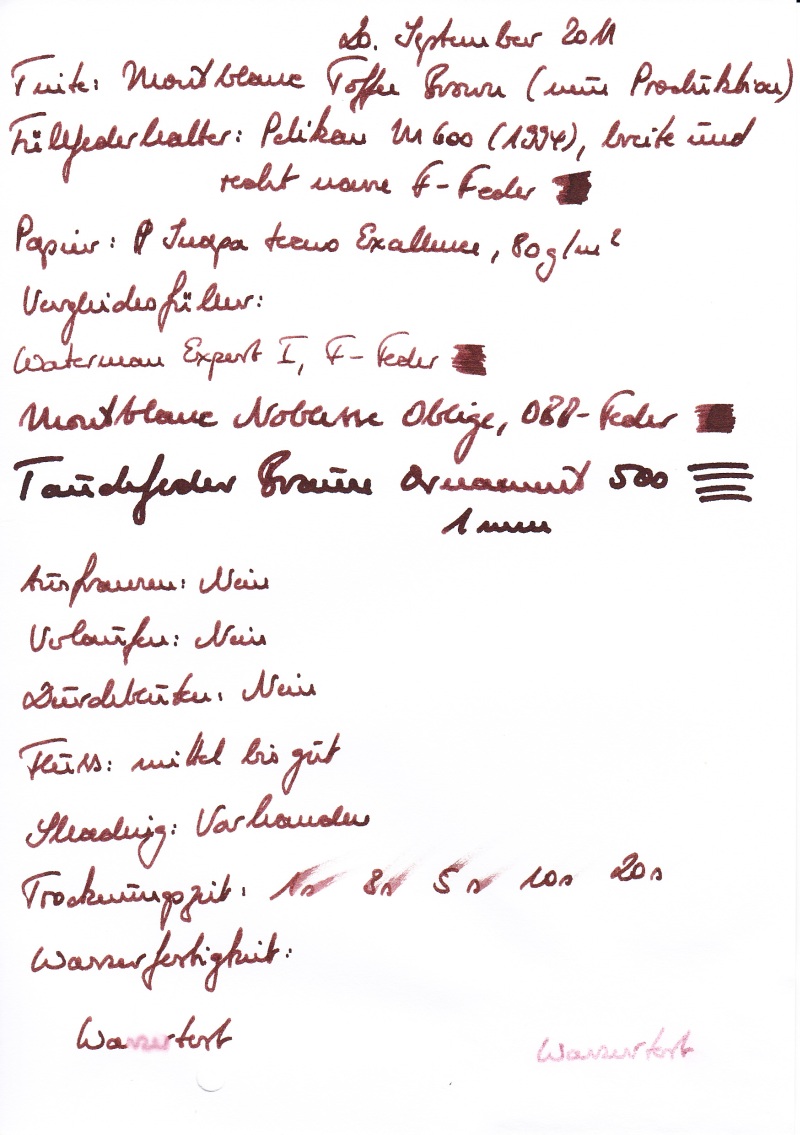 20. September 2011
Tinte: Montblanc Toffee Brown (neue Produktion)
Füllfederhalter: Pelikan M600 (1994), breite und
recht nasse F-Feder
Papier: Inapa tecno Excellence, 80g/m²
Vergleichsfüller:
Waterman Expert I, F-Feder
Montblanc Noblesse Oblige, OBB-Feder
Tauchfeder Brause Ornament 500
1mm
Ausfransen: Nein
Verlaufen: Nein
Durchbluten: Nein
Fluss: mittel bis gut
Shading: Vorhanden
Trocknungszeit: 1s 3s 5s 10s 20s
Wasserfestigkeit:
Wassertest Wassertest